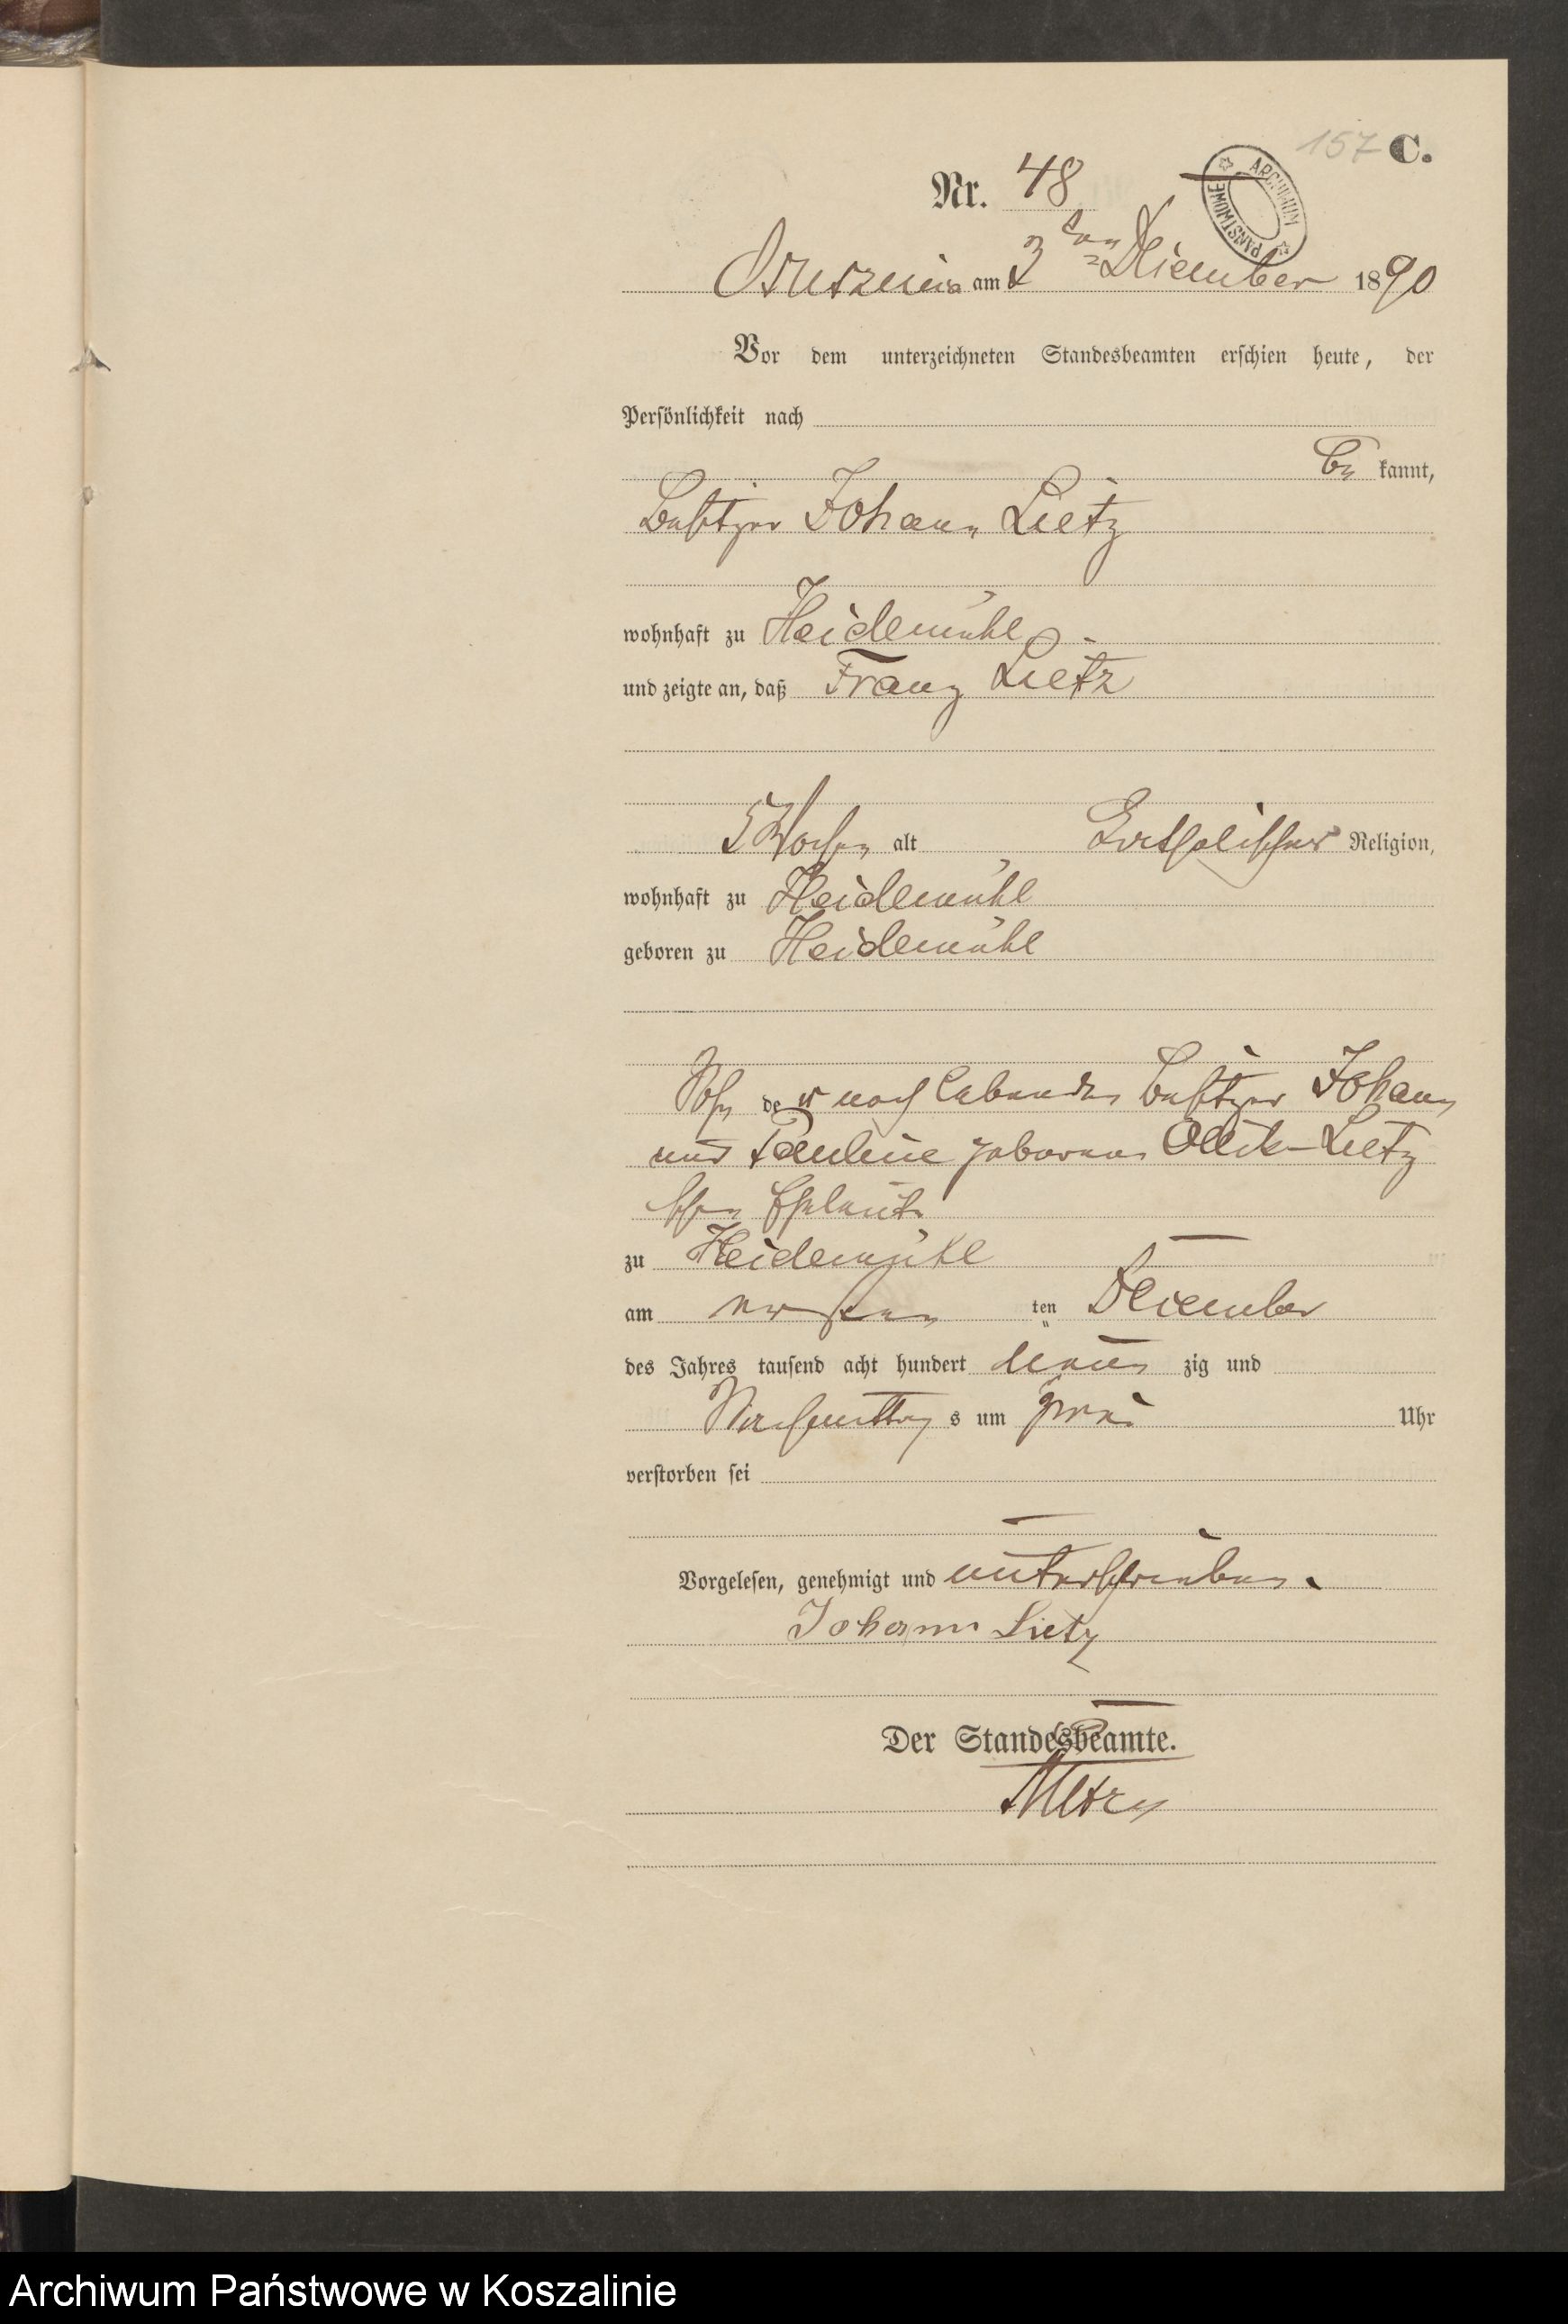 157 C.
Nr. 48
ARCHIWUM PAŃSTWOWE
am 3ten December 1890
Vor dem unterzeichneten Standesbeamten erschien heute, der
Persönlichkeit nach
be kannt,
Besitzer Johann Lietz
wohnhaft zu Heidemühl
und zeigte an, daß Franz Lietz
5 Wochen alt Katholischer Religion,
wohnhaft zu Heidemühl
geboren zu Heidemühl
Sohn der noch lebenden Besitzer Johann
und Pauline geborenen Lietz
schen Eheleute
zu Heidemühl
am ersten ten December
des Jahres tausend acht hundert neun zig und
Nachmittag s um zwei Uhr
verstorben sei
Vorgelesen, genehmigt und unterschrieben.
Johann Lietz
Der Standesbeamte.
Archiwum Państwowe w Koszalinie